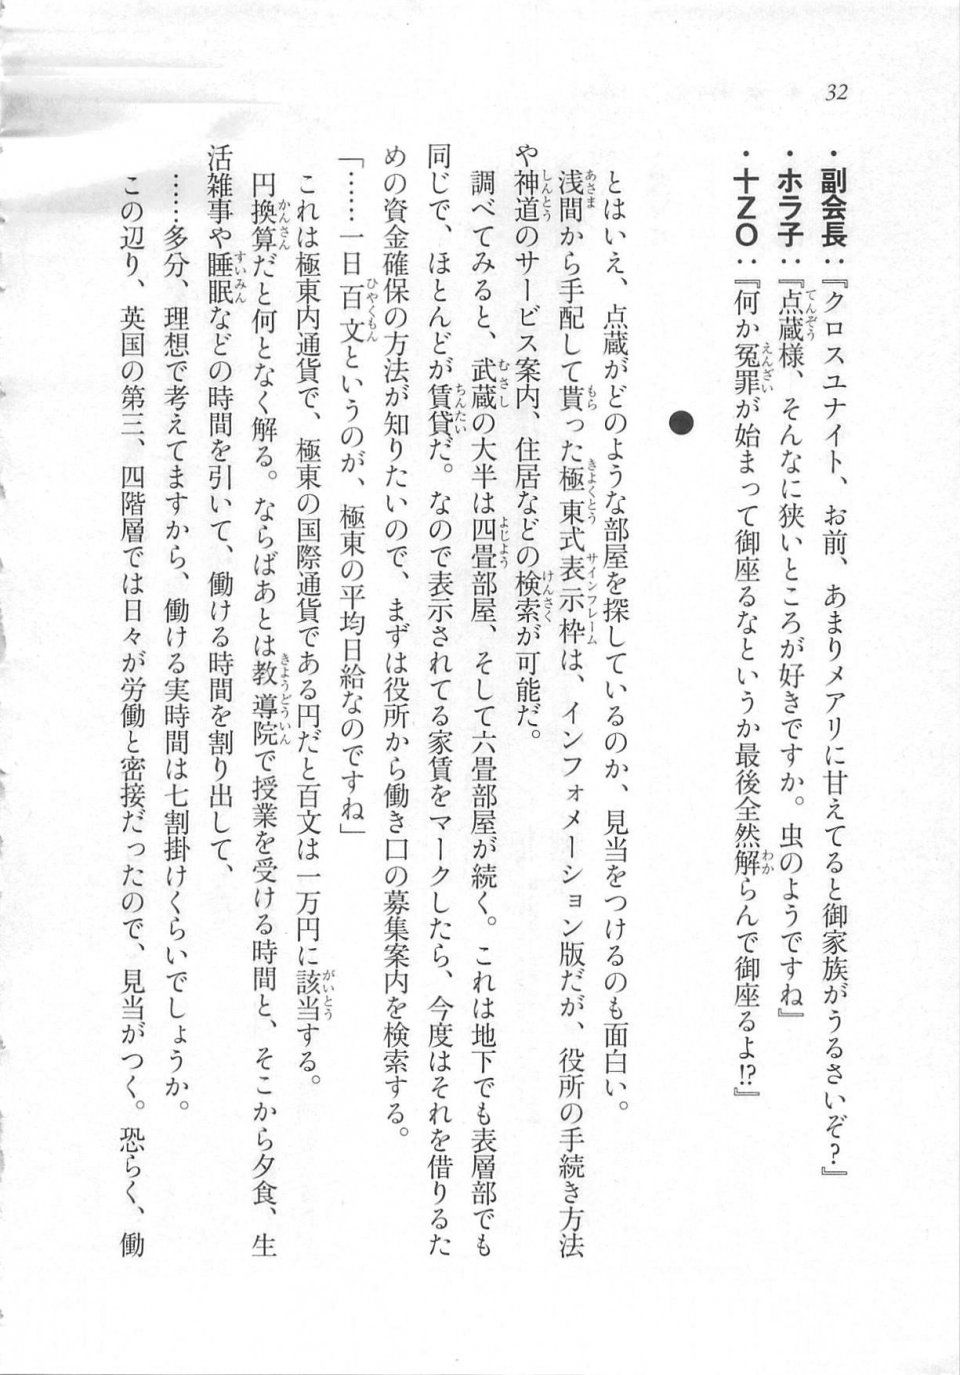 32
・副会長：『クロスユナイト、お前、あまりメアリに甘えてると御家族がうるさいぞ？』
・ホラ子：『点蔵様、そんなに狭いところが好きですか。虫のようですね』
・十ＺＯ：『何か冤罪が始まって御座るなというか最後全然解らんで御座るよ!?』
●
とはいえ、点蔵がどのような部屋を探しているのか、見当をつけるのも面白い。
浅間から手配して貰った極東式表示枠は、インフォメーション版だが、役所の手続き方法
や神道のサービス案内、住居などの検索が可能だ。
調べてみると、武蔵の大半は四畳部屋、そして六畳部屋が続く。これは地下でも表層部でも
同じで、ほとんどが賃貸だ。なので表示されてる家賃をマークしたら、今度はそれを借りるた
めの資金確保の方法が知りたいので、まずは役所から働き口の募集案内を検索する。
「……一日百文というのが、極東の平均日給なのですね」
これは極東内通貨で、極東の国際通貨である円だと百文は一万円に該当する。
円換算だと何となく解る。ならばあとは教導院で授業を受ける時間と、そこから夕食、生
活雑事や睡眠などの時間を引いて、働ける時間を割り出して、
……多分、理想で考えてますから、働ける実時間は七割掛けくらいでしょうか。
この辺り、英国の第三、四階層では日々が労働と密接だったので、見当がつく。恐らく、働